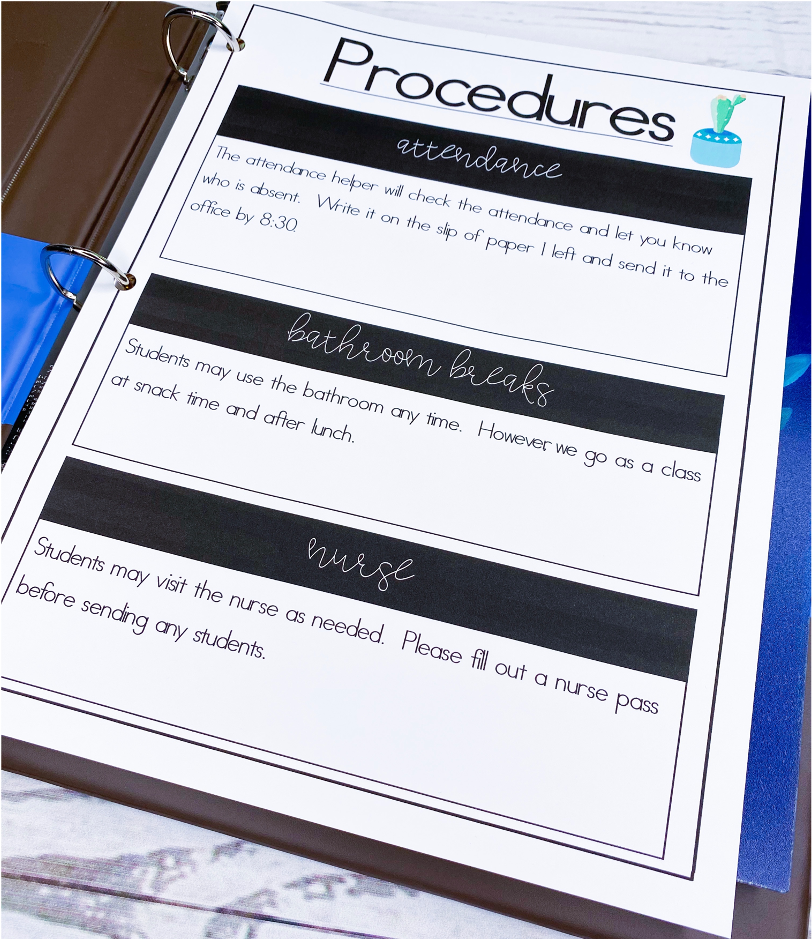 Procedures
attendance
The attendance helper will check the attendance and let you know
who is absent. Write it on the slip of paper I left and send it to the
office by 8:30.
bathroom breaks
Students may use the bathroom any time. However, we go as a class
at snack time and after lunch.
nurse
Students may visit the nurse as needed. Please fill out a nurse pass
before sending any students.